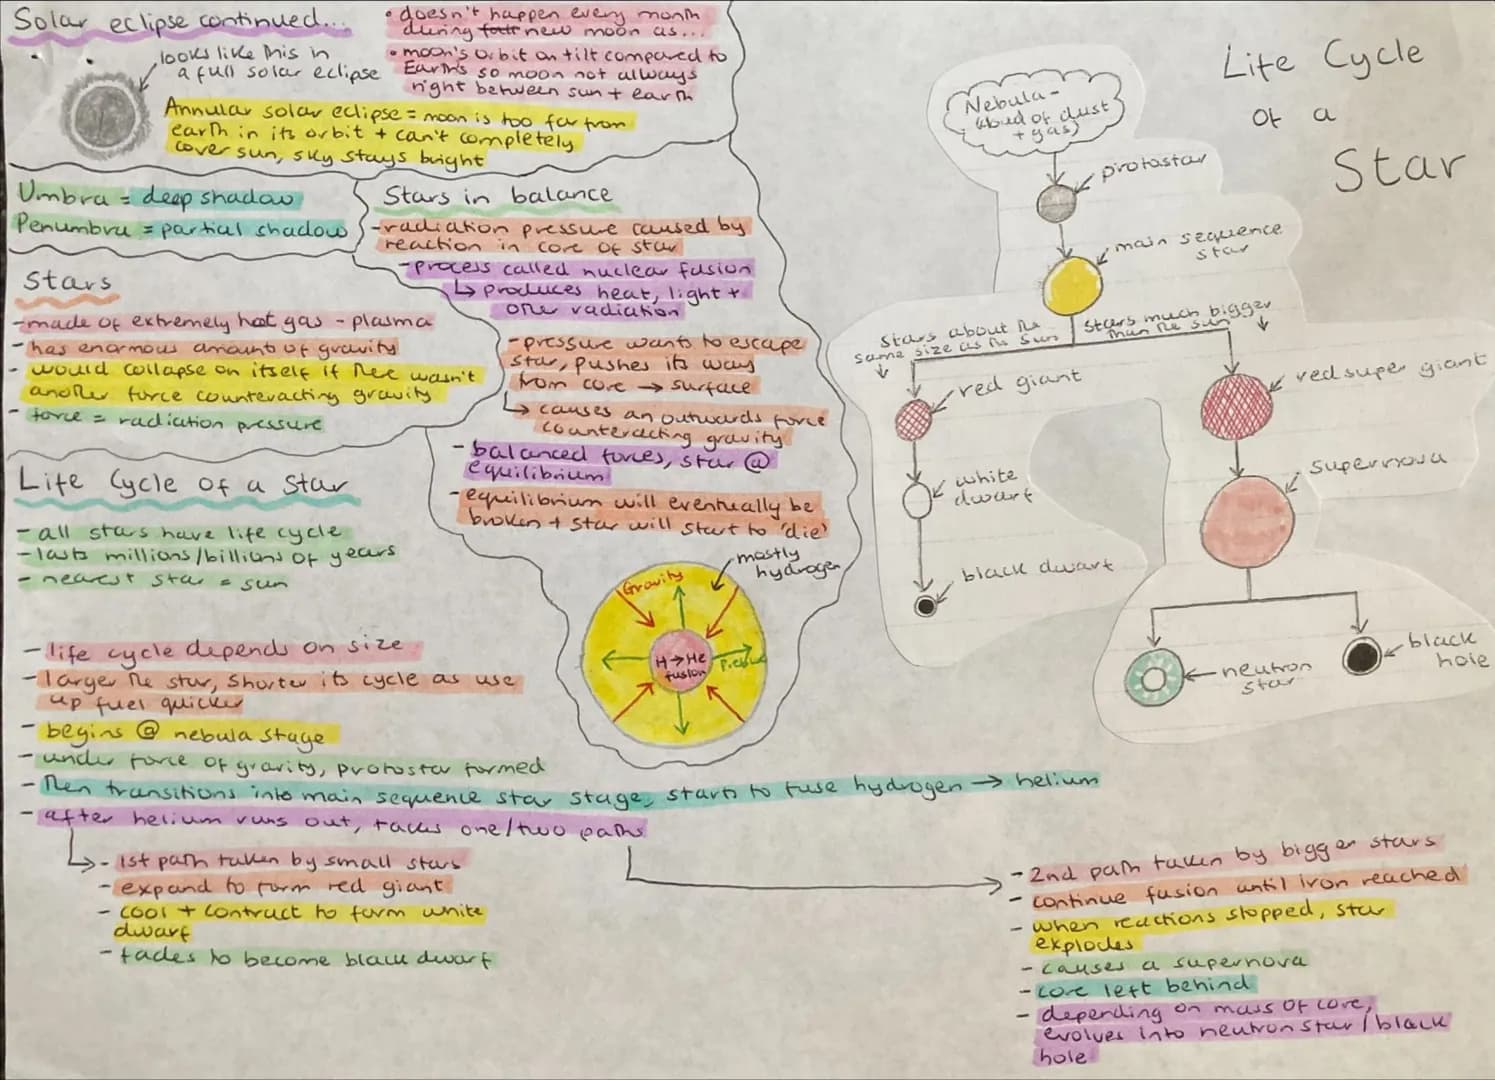 Solar eclipse continued...
looks like this in
a full solar eclipse
• doesn't happen every month
during new moon as...
• moon's orbit on tilt compared to
Earth's so moon not always
right between sun + earth
Annular solar eclipse = moon is too far from
earth in its orbit + can't completely
cover sun, sky stays bright
Umbra = deep shadow
Penumbra = partial shadow
Stars
- made of extremely hot gas - plasma
- has enormous amount of gravity
- would collapse on itself if there wasn't
another force counteracting gravity
- force = radiation pressure
Stars in balance
- radiation pressure caused by
reaction in core of star
- process called nuclear fusion
↳ produces heat, light +
other radiation
- pressure wants to escape
star, pushes its way
from core → surface
↳ causes an outwards force
counteracting gravity
- balanced forces, star @
equilibrium
- equilibrium will eventually be
broken + star will start to 'die'
mostly
hydrogen
Gravity
H→He
fusion
Life Cycle of a Star
- all stars have life cycle
- lasts millions/billions of years
- nearest star = sun
- life cycle depends on size
- larger the star, shorter its cycle as use
up fuel quicker
- begins @ nebula stage
- under force of gravity, protostar formed
- then transitions into main sequence star stage, starts to fuse hydrogen → helium
- after helium runs out, takes one/two paths
- 1st path taken by small stars
- expand to form red giant
- cool + contract to form white
dwarf
- fades to become black dwarf
- 2nd path taken by bigger stars
- continue fusion until iron reached
- when reactions stopped, star
explodes
- causes a supernova
- core left behind
- depending on mass of core,
evolves into neutron star / black
hole
Life Cycle
of a
Star
Nebula -
(cloud of dust
+ gas)
protostar
main sequence
star
stars about the
same size as the sun
stars much bigger
than the sun
red giant
white
dwarf
black dwarf
red super giant
supernova
neutron
star
black
hole